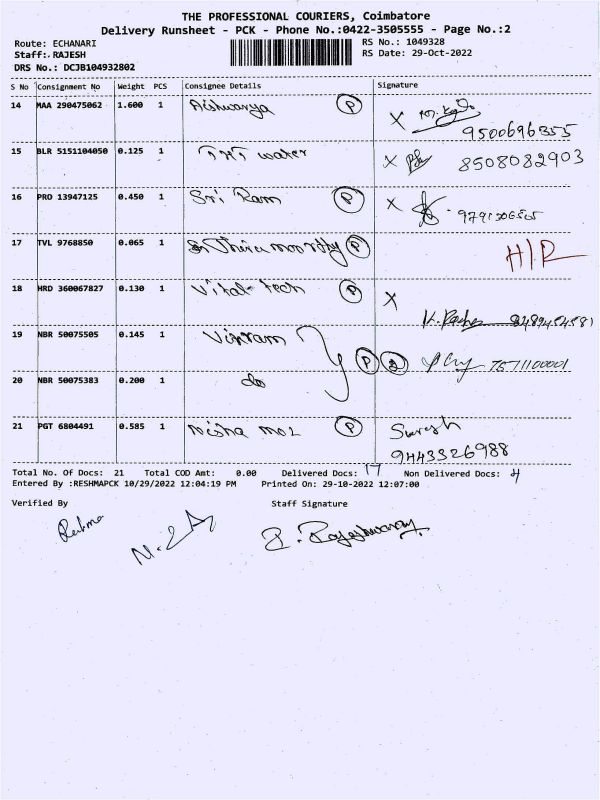 THE PROFESSIONAL COURIERS, Coimbatore
Delivery Runsheet - PCK - Phone No.:0422-3505555 - Page No.:2
Route: ECHANARI
RS No.: 1049328
Staff: RAJESH
RS Date: 29-Oct-2022
DRS No.: DCJB104932802
S No Consignment No Weight PCS Consignee Details Signature
14 MAA 290475062 1.600 1 Aishwarya P X
9500696355
15 BLR 5151104050 0.125 1 water X 8508082903
16 PRO 13947125 0.450 1 Sri Ram P X
17 TVL 9768850 0.065 1 Thirumoorthy P H/R
18 HRD 360067827 0.130 1 Vital-tech P X
8489454581
19 NBR 50075505 0.145 1 P 2 7571100001
20 NBR 50075383 0.200 1 do
21 PGT 6804491 0.585 1 P Suresh
9443326988
Total No. Of Docs: 21 Total COD Amt: 0.00 Delivered Docs: 17 Non Delivered Docs: 4
Entered By :RESHMAPCK 10/29/2022 12:04:19 PM Printed On: 29-10-2022 12:07:00
Verified By Staff Signature